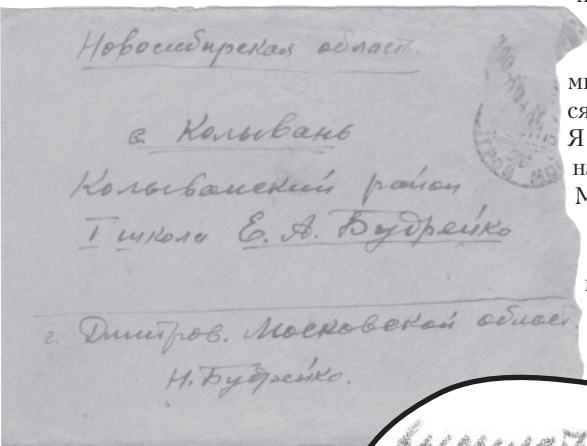 Новосибирская област.
с. Колывань
Колыванский район
I школа Е. А. Будрейко
г. Дмитров. Московской област
Н. Будрейко.
ся
Я
М